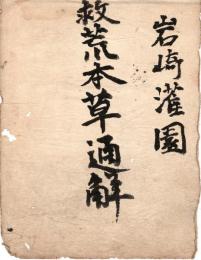 岩崎灌園
救荒本草通解